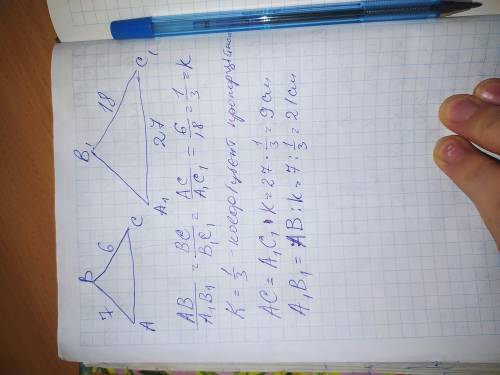 B
7
6
A
C
B₁
18
C₁
27
A₁
AB/A₁B₁ = BC/B₁C₁ = AC/A₁C₁ = 6/18 = 1/3 = K
K = 1/3 - коэффициент пропорцийной
AC = A₁C₁ · K = 27 · 1/3 = 9 см
A₁B₁ = AB : K = 7 : 1/3 = 21 см